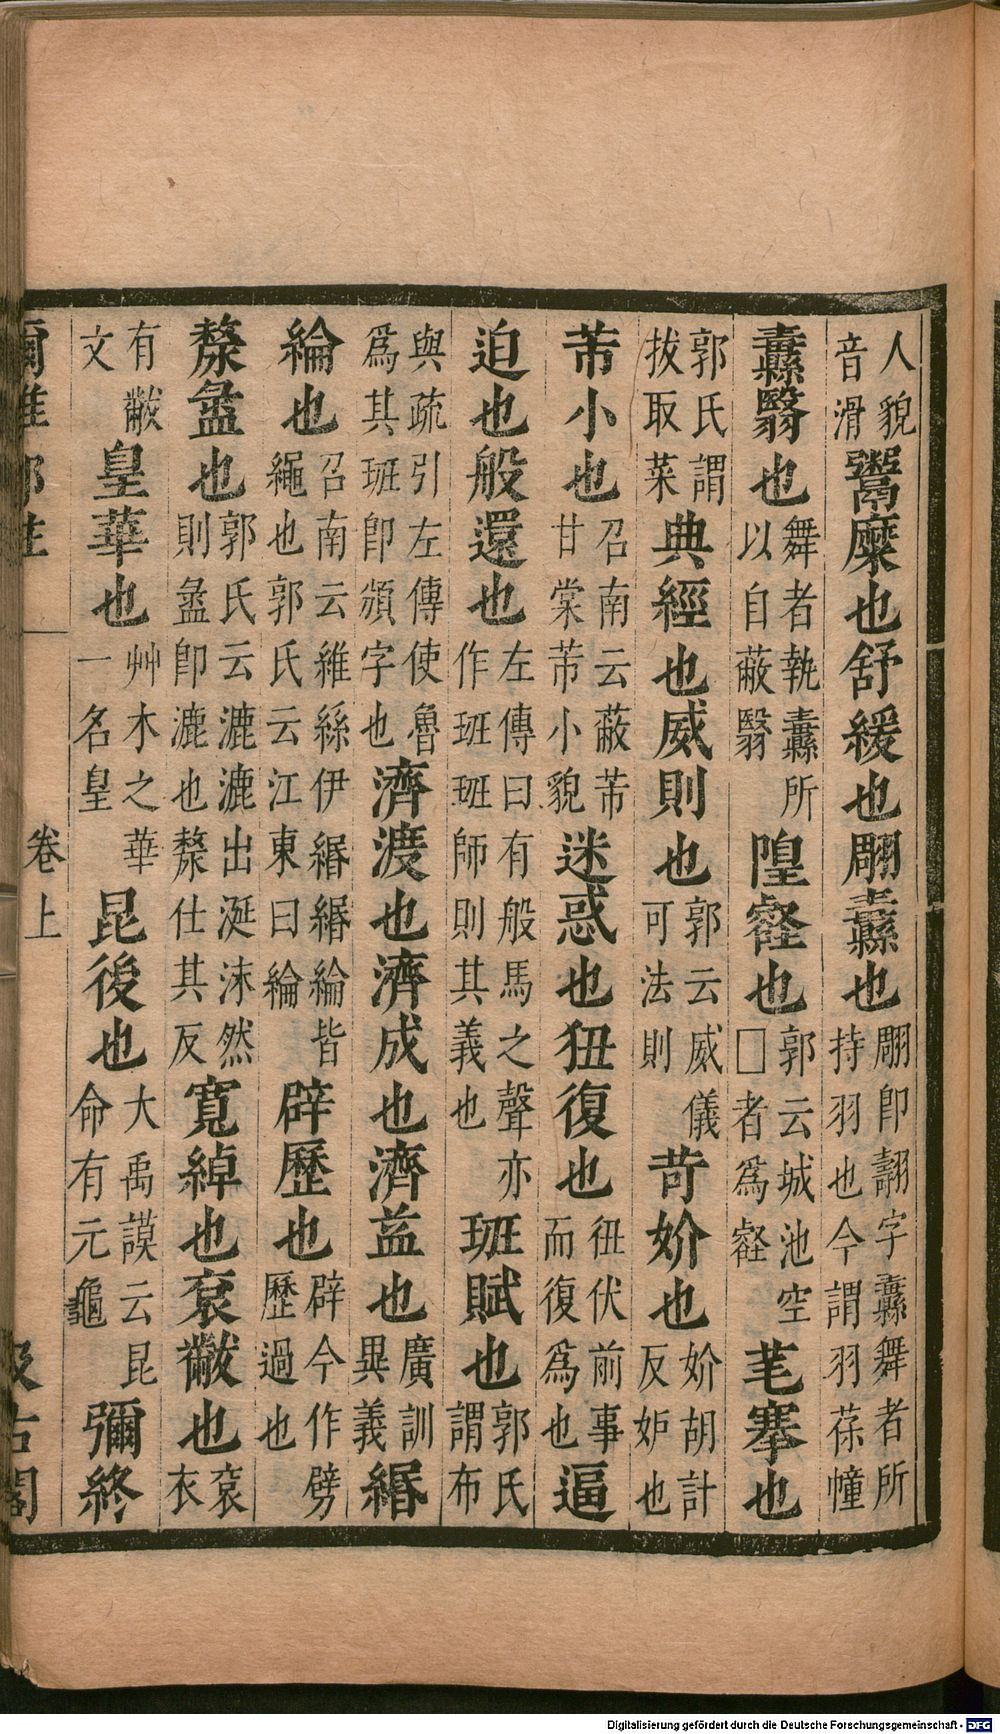 人貌音滑鬻糜也舒緩也翢纛也翢卽翿字纛舞者所持羽也今謂羽葆幢
纛翳也舞者執纛所以自蔽翳隍壑也郭云城池空□者爲壑芼搴也
郭氏謂拔取菜典經也威則也郭云威儀可法則苛妎也妎胡計反妒也
芾小也召南云蔽芾甘棠芾小貌迷惑也狃復也狃伏前事而復爲也逼
迫也般還也左傳曰有般馬之聲亦作班班師則其義也班賦也郭氏謂布
與疏引左傳使魯爲其班卽頒字也濟渡也濟成也濟益也廣訓異義緡
綸也召南云維絲伊緡緡綸皆繩也郭氏云江東曰綸辟歷也辟今作劈歷過也
漦盝也郭氏云漉漉出涎沫然則盝卽漉也漦仕其反寬綽也袞黻也袞衣
有黻文皇華也艸木之華一名皇昆後也大禹謨云昆命有元龜彌終
爾雅鄭注
卷上
汲古閣
Digitalisierung gefördert durch die Deutsche Forschungsgemeinschaft - DFG